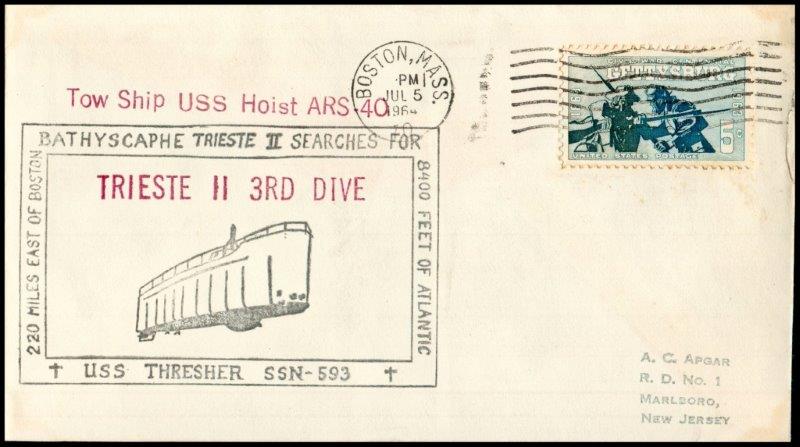 Tow Ship USS Hoist ARS 40
BOSTON, MASS.
PM
JUL 5
1964
CIVIL WAR CENTENNIAL
GETTYSBURG
1863
1963
5¢
UNITED STATES POSTAGE
BATHYSCAPHE TRIESTE II SEARCHES FOR
220 MILES EAST OF BOSTON
TRIESTE II 3RD DIVE
8400 FEET OF ATLANTIC
† USS THRESHER SSN-593 †
A. C. APGAR
R. D. NO. 1
MARLBORO,
NEW JERSEY